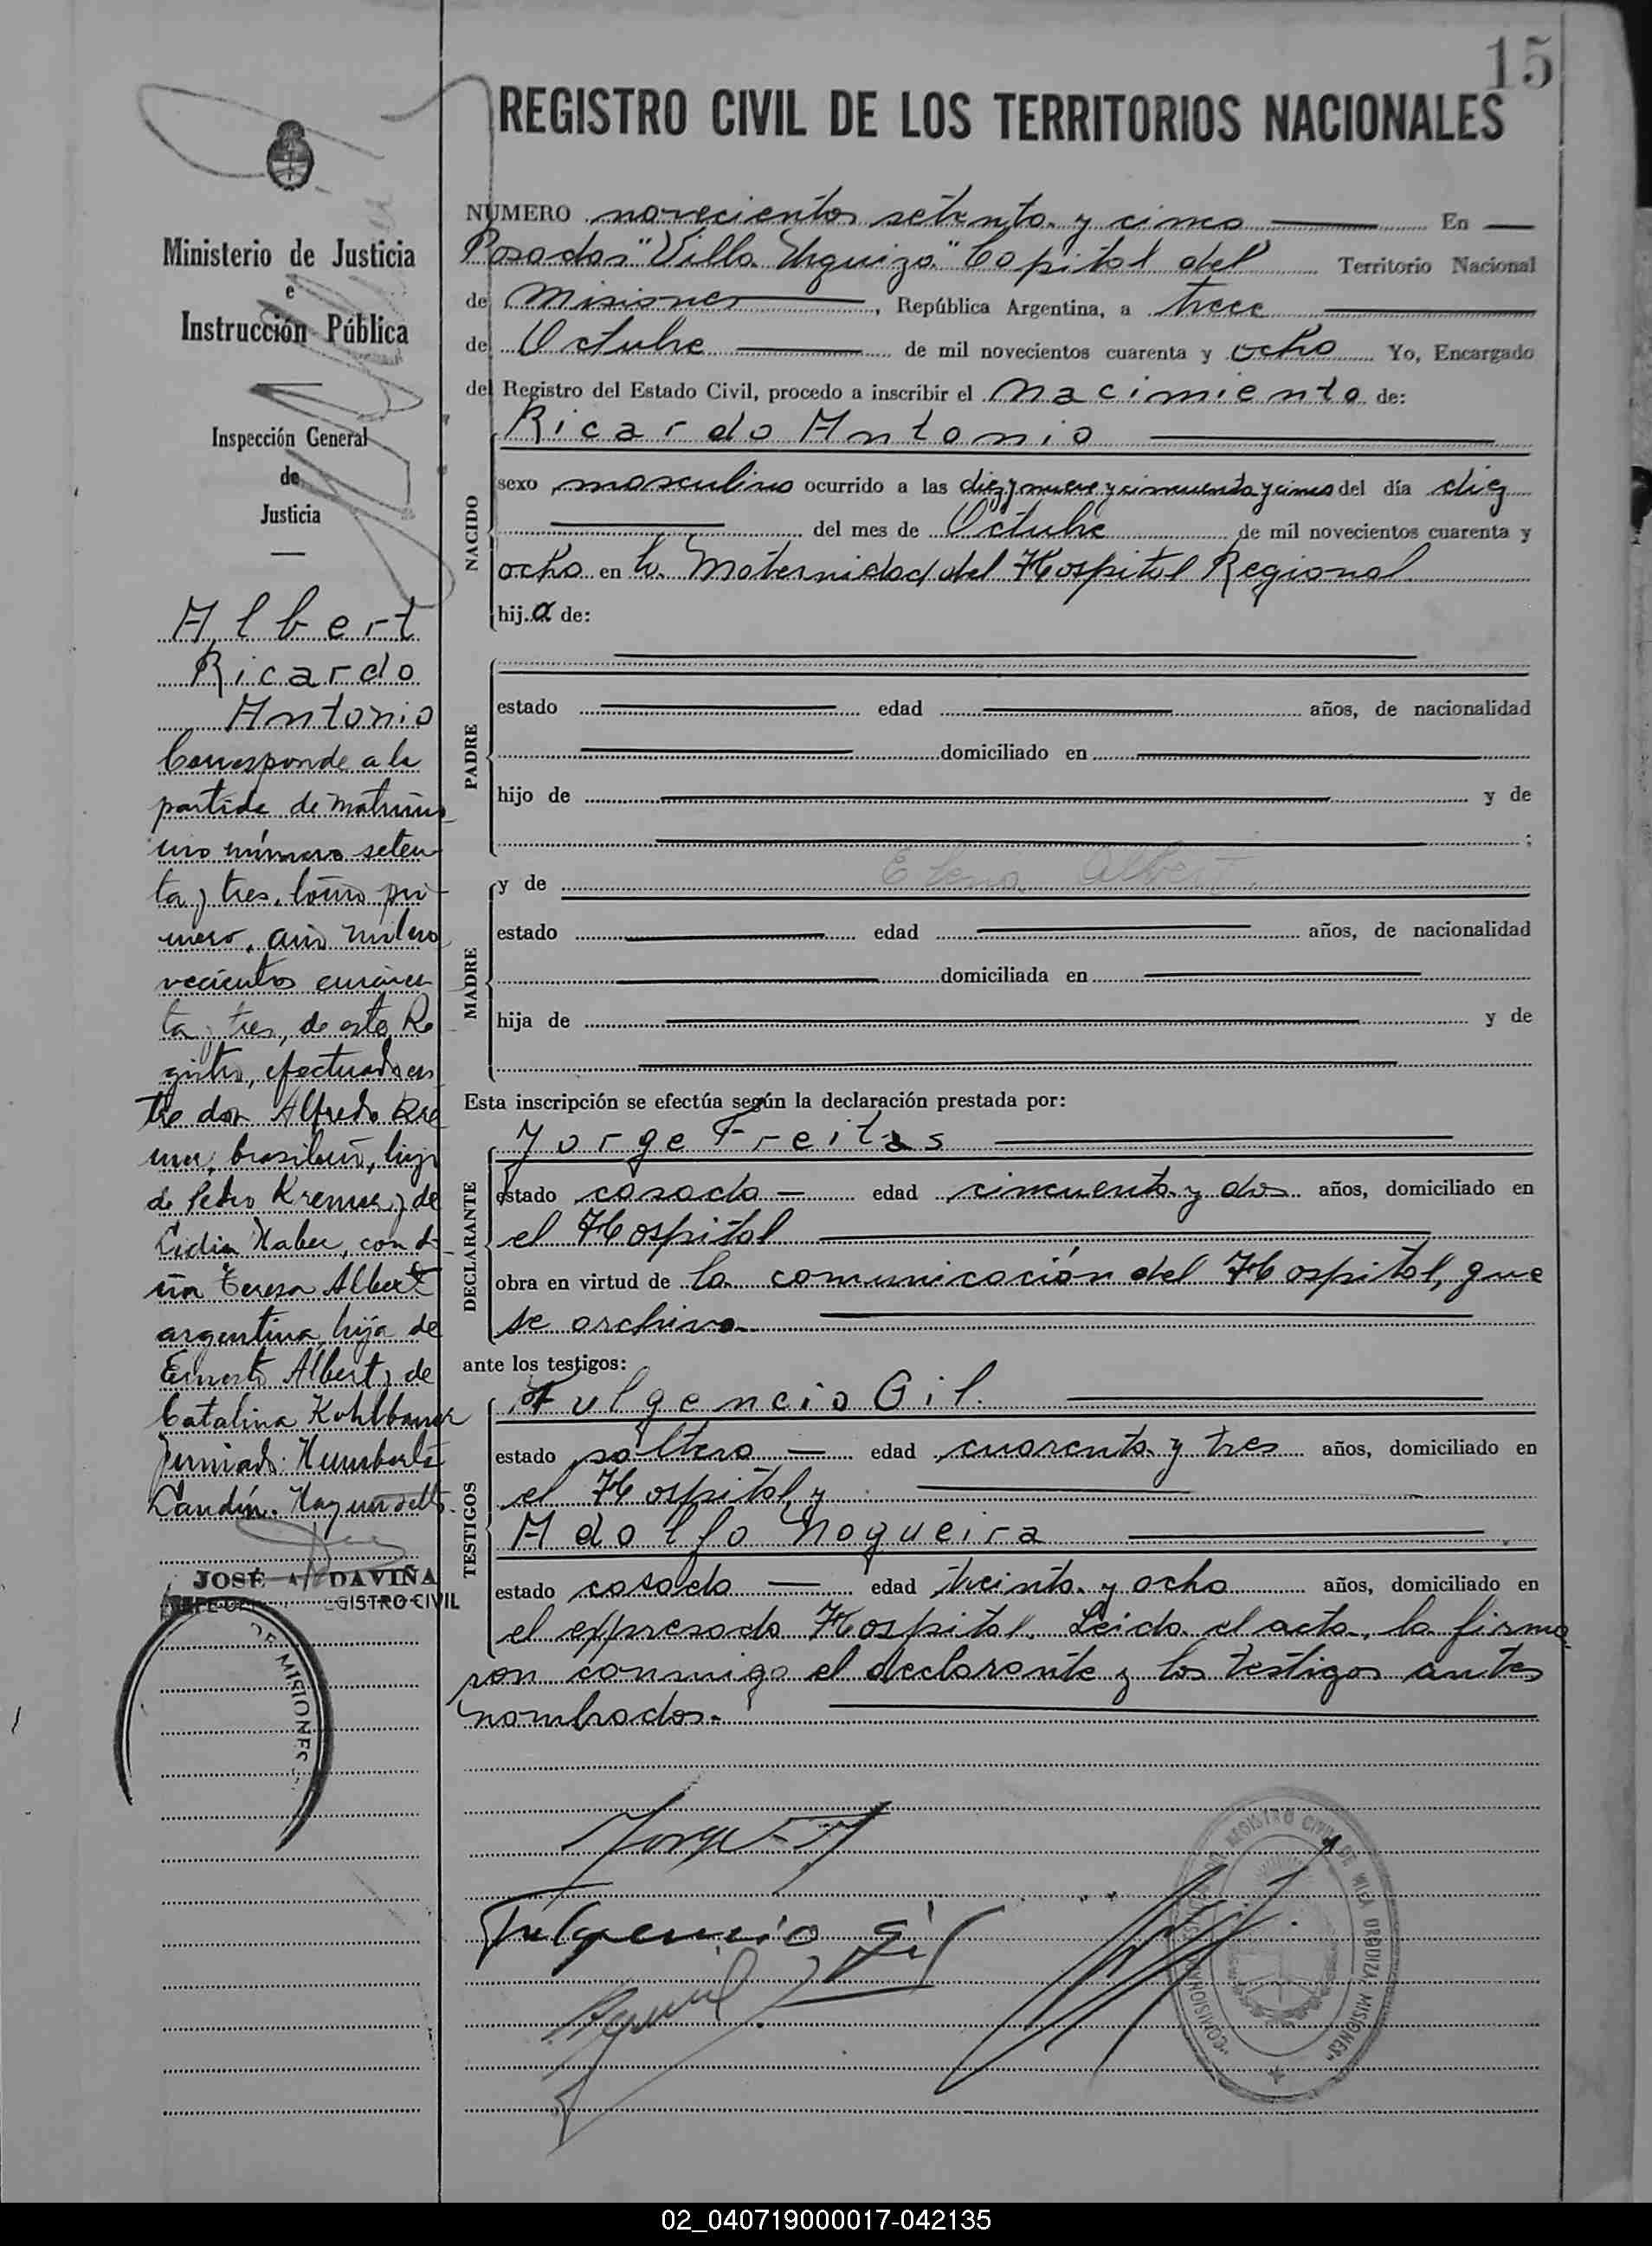 15
REGISTRO CIVIL DE LOS TERRITORIOS NACIONALES
Ministerio de Justicia
e
Instrucción Pública
Inspección General
de
Justicia
Albert
Ricardo
Antonio
Corresponde a la
partida de matrimo
nio número seten
ta y tres, tomo pri
mero, año mil no
vecientos cuaren
ta y tres, de este Re
gistro, efectuado en
tre don Alfredo Kre
mer, brasileño, hijo
de Pedro Kremer y de
Lidia Haber, con do
ña Teresa Albert
argentina, hija de
Ernesto Albert y de
Catalina Kohlbauer
Firmado: Humberto
Landín. Hay un sello.
JOSÉ A. DAVIÑA
JEFE REGISTRO CIVIL
DE MISIONES
NUMERO novecientos setenta y cinco En
Posadas "Villa Urquiza" Capital del Territorio Nacional
de Misiones, República Argentina, a trece
de Octubre de mil novecientos cuarenta y ocho Yo, Encargado
del Registro del Estado Civil, procedo a inscribir el Nacimiento de:
Ricardo Antonio
NACIDO
sexo masculino ocurrido a las diez y nueve y cincuenta y cinco del día diez
del mes de Octubre de mil novecientos cuarenta y
ocho en la Maternidad del Hospital Regional
hij.o de:
PADRE
estado edad años, de nacionalidad
domiciliado en
hijo de y de
;
y de Elena Albert
MADRE
estado edad años, de nacionalidad
domiciliada en
hija de y de
Esta inscripción se efectúa según la declaración prestada por:
Jorge Freitas
DECLARANTE
estado casado edad cincuenta y dos años, domiciliado en
el Hospital
obra en virtud de la comunicación del Hospital, que
se archiva.
ante los testigos:
Fulgencio Gil.
TESTIGOS
estado soltero edad cuarenta y tres años, domiciliado en
el Hospital, y
Adolfo Nogueira
estado casado edad treinta y ocho años, domiciliado en
el expresado Hospital. Leida el acta, la firma
ron conmigo el declarante y los testigos antes
nombrados.
Jorge F
Fulgencio Gil
REGISTRO CIVIL DE VILLA URQUIZA MISIONES
02_040719000017-042135